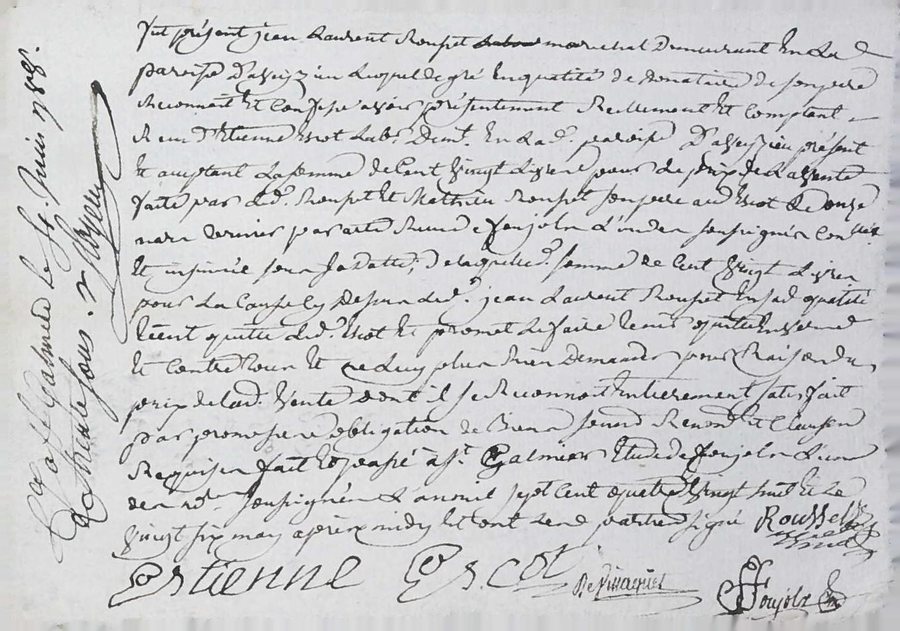 fut présent jean Laurent Rouset marechal Demeurant En La d.
paroisse D'aveyzieu Lequel de gré En qualité de donataire de son pere
Reconnoit Et Confesse avoir présentement Reellement Et Comptant
Reçu D'Etienne Escot Lab.r Dem.t En La d. paroisse D'aveyzieu présent
Et acceptant La somme de Cent Vingt Livres pour Le prix de La Vente
faite par Led. Rouset Et Mathieu Rouset son pere aud Escot Le onze
mars dernier par acte Reçu de foujols L'un des soussignés Controllé
Et insinué sous Sa datte, De laquelle d. somme de Cent Vingt Livres
pour La Cause Cy Dessus Led. jean Laurent Rouset En sad. qualité
tient quitte led. Escot Et promet Le faire tenir quitte Envers
Et Contre tous Et ne Luy plus Rien Demander pour Raison du
prix de Lad. Vente dont il se Reconnoit Entierement satisfait
par promesse obligation de Biens Renond Et Clauses
Requises fait Et passé a S.t Galmier Etude de foujols L'un
des n.res soussignés L'an mil sept Cent quatre Vingt huit Et Le
Vingt six may apres midy Et ont Les parties signé Rousset
Estienne Escot
foujols
Ca a St Galmier le 4. juin 1788.
Rc trente sous.